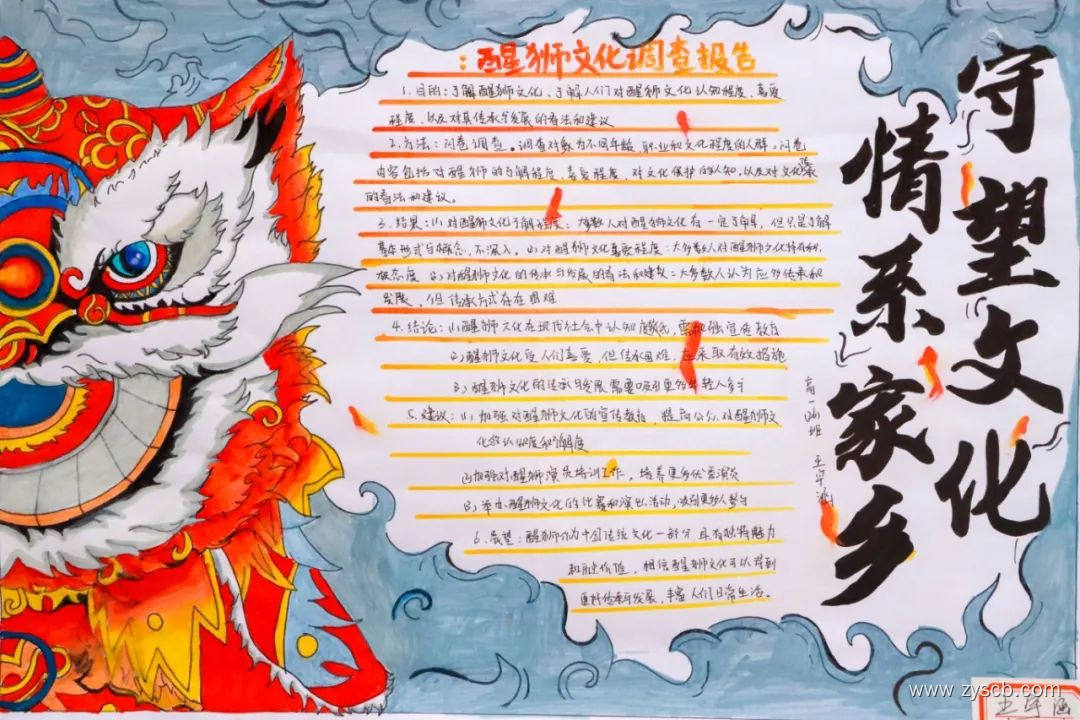 守望文化
情系家乡
:醒狮文化调查报告
1.目的:了解醒狮文化、了解人们对醒狮文化认知程度、喜爱
程度,以及对其传承与发展的看法和建议
2.方法:问卷调查。调查对象为不同年龄,职业和文化程度的人群。问卷
内容包括对醒狮的了解程度,喜爱程度,对文化保护的认知,以及对文化发展
的看法和建议。
3.结果:(1)对醒狮文化了解程度:多数人对醒狮文化有一定了解,但只是了解
基本形式与概念,不深入。(2)对醒狮文化喜爱程度:大多数人对醒狮文化持有积
极态度(3)对醒狮文化的传承与发展的看法和建议:大多数人认为应该传承和
发展,但传承方式存在困难
4.结论:(1)醒狮文化在现代社会中认知度较低,需加强宣传教育
(2)醒狮文化受人们喜爱,但传承困难,应采取有效措施
(3)醒狮文化的传承与发展需要吸引更多年轻人参与
5.建议:(1)加强对醒狮文化的宣传教育,提高公众对醒狮文
化的认识度和了解度
(2)加强对醒狮演员培训工作,培养更多优秀演员
(3)举办醒狮文化的比赛和演出活动,吸引更多人参与
6.展望:醒狮作为中国传统文化一部分,具有独特魅力
和价值,相信醒狮文化可以得到
更好传承与发展,丰富人们日常生活。
高一(4)班
王宇涵
www.zyscb.com
王宇涵